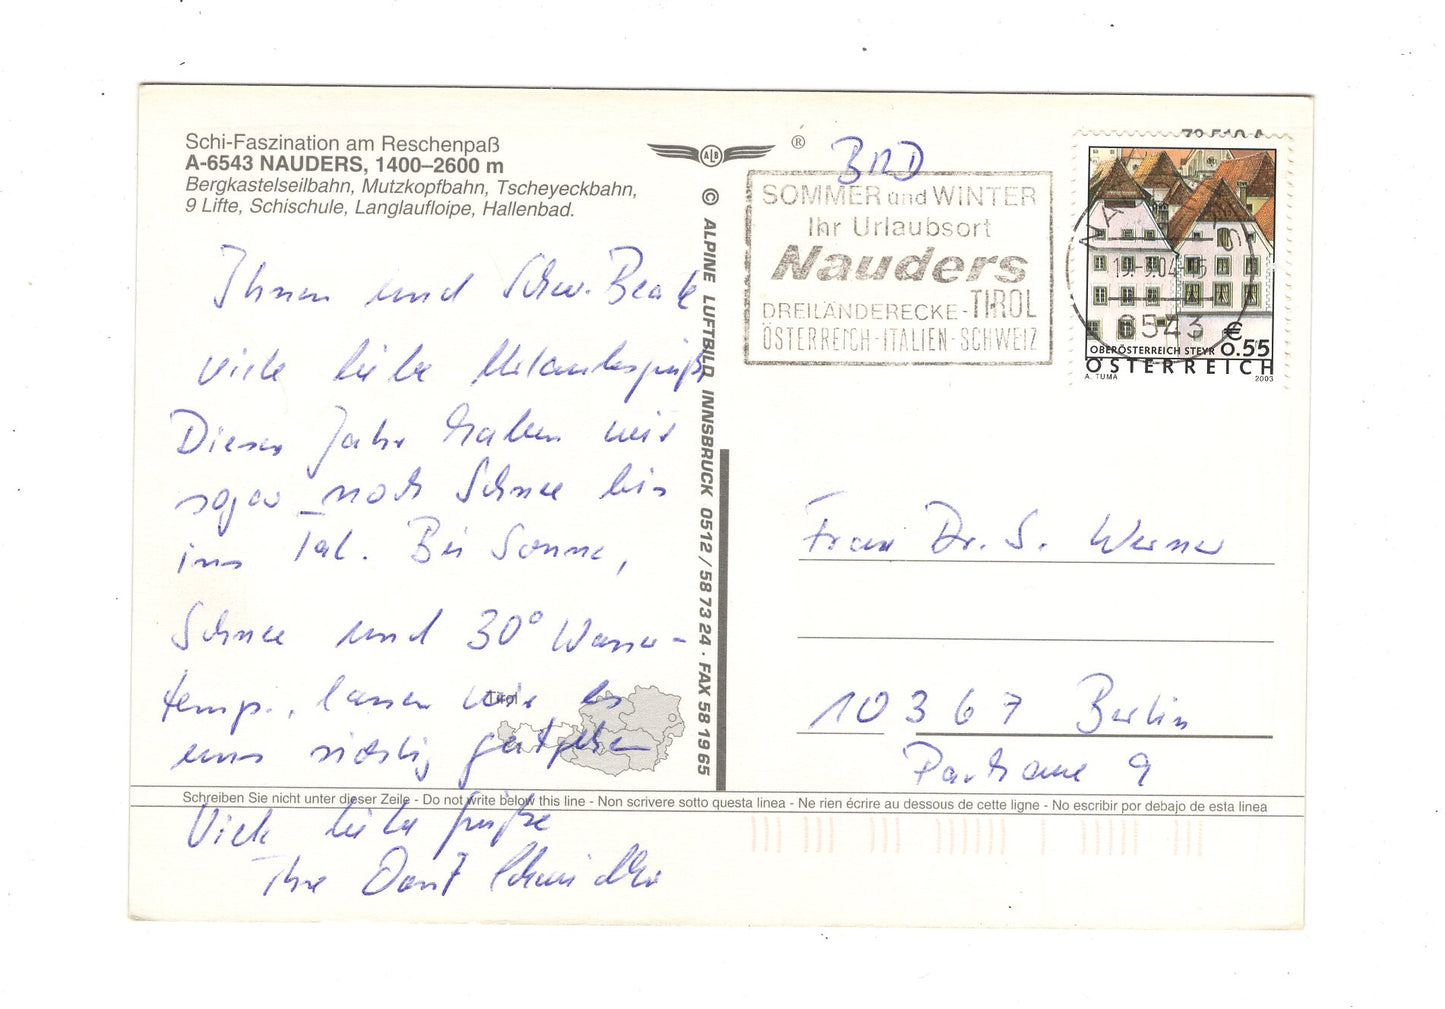 Schi-Faszination am Reschenpaß
A-6543 NAUDERS, 1400–2600 m
Bergkastelseilbahn, Mutzkopfbahn, Tscheyeckbahn,
9 Lifte, Schischule, Langlaufloipe, Hallenbad.
Ihnen und Schw. Beate
viele liebe Urlaubsgrüße
Dieses Jahr haben wir
sogar noch Schnee bis
ins Tal. Bei Sonne,
Schnee und 30° Wasser-
temp., lassen wir es
uns richtig gutgehen
Viele liebe Grüße
Ihre
Tirol
ALB
®
© ALPINE LUFTBILD INNSBRUCK 0512 / 58 73 24 · FAX 58 19 65
BRD
SOMMER und WINTER
Ihr Urlaubsort
Nauders
DREILÄNDERECKE-TIROL
ÖSTERREICH-ITALIEN-SCHWEIZ
6543
€
0.55
OBERÖSTERREICH STEYR
ÖSTERREICH
A. TUMA 2003
Frau Dr. S. Werner
10367 Berlin
Parkaue 9
Schreiben Sie nicht unter dieser Zeile - Do not write below this line - Non scrivere sotto questa linea - Ne rien écrire au dessous de cette ligne - No escribir por debajo de esta linea